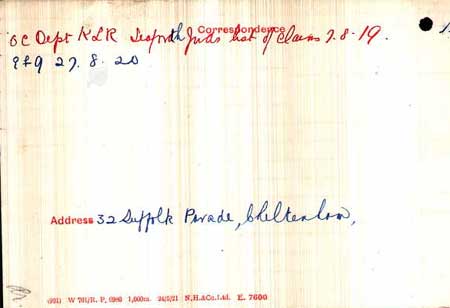 Correspondence
OC Dept KLR Seaforth fwds list of Claims 7.8.19.
27.8.20
Address 32 Suffolk Parade, Cheltenham,
(931) W 791/R. P. 6980 1,000m. 24/5/21 N.H.&Co.Ltd. E. 7600